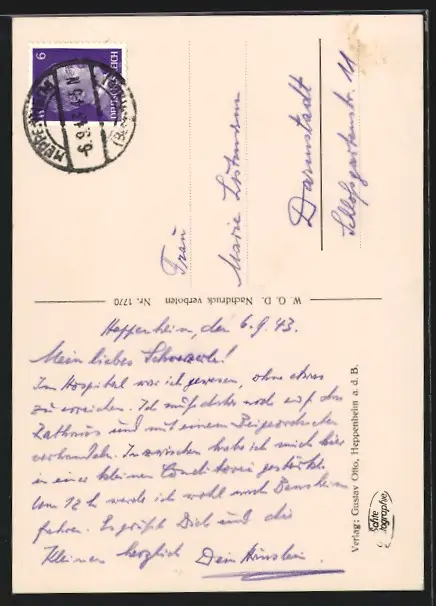 6
HEPPENHEIM
6.9.43
Frau
Marie
Darmstadt
Schloßgartenstr. 11
W. G. O. Nachdruck verboten Nr. 1770
Heppenheim, den 6.9.43.
Mein liebes
Im Hospital war ich gewesen, ohne etwas
zu erreichen. Ich muß daher noch auf das
Rathaus und mit einem Beigeordneten
verhandeln. Inzwischen habe ich mich hier
in einer kleinen Conditorei gestärkt.
Um 12 h werde ich wohl nach Bensheim
fahren. Es grüßt Dich und die
Kleinen herzlich Dein
Verlag: Gustav Otto, Heppenheim a. d. B.